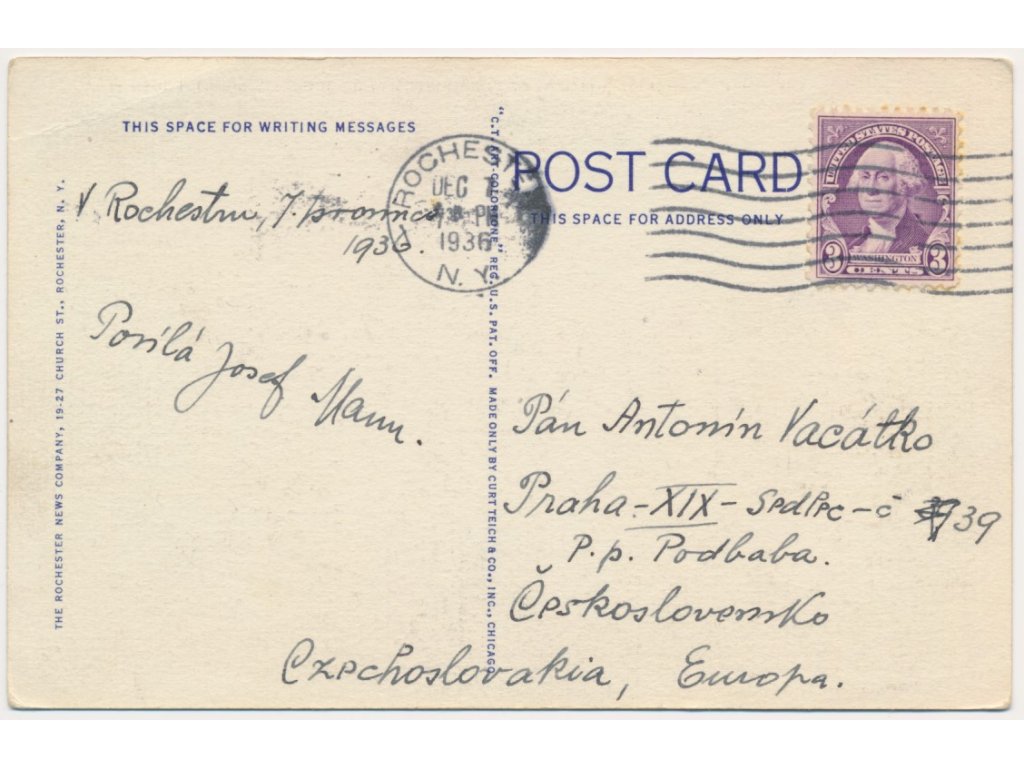 THIS SPACE FOR WRITING MESSAGES
V Rochestru, 7. prosince
1936.
Posílá Josef Mann.
THE ROCHESTER NEWS COMPANY, 19-27 CHURCH ST., ROCHESTER, N. Y.
"C.T. ART-COLORTONE" REG. U.S. PAT. OFF. MADE ONLY BY CURT TEICH & CO., INC., CHICAGO
ROCHESTER
DEC 7
PM
1936
N.Y.
POST CARD
THIS SPACE FOR ADDRESS ONLY
UNITED STATES POSTAGE
3 WASHINGTON 3
CENTS
Pán Antonín Vacátko
Praha - XIX - č 39
P.p. Podbaba.
Československo
Czechoslovakia, Europa.